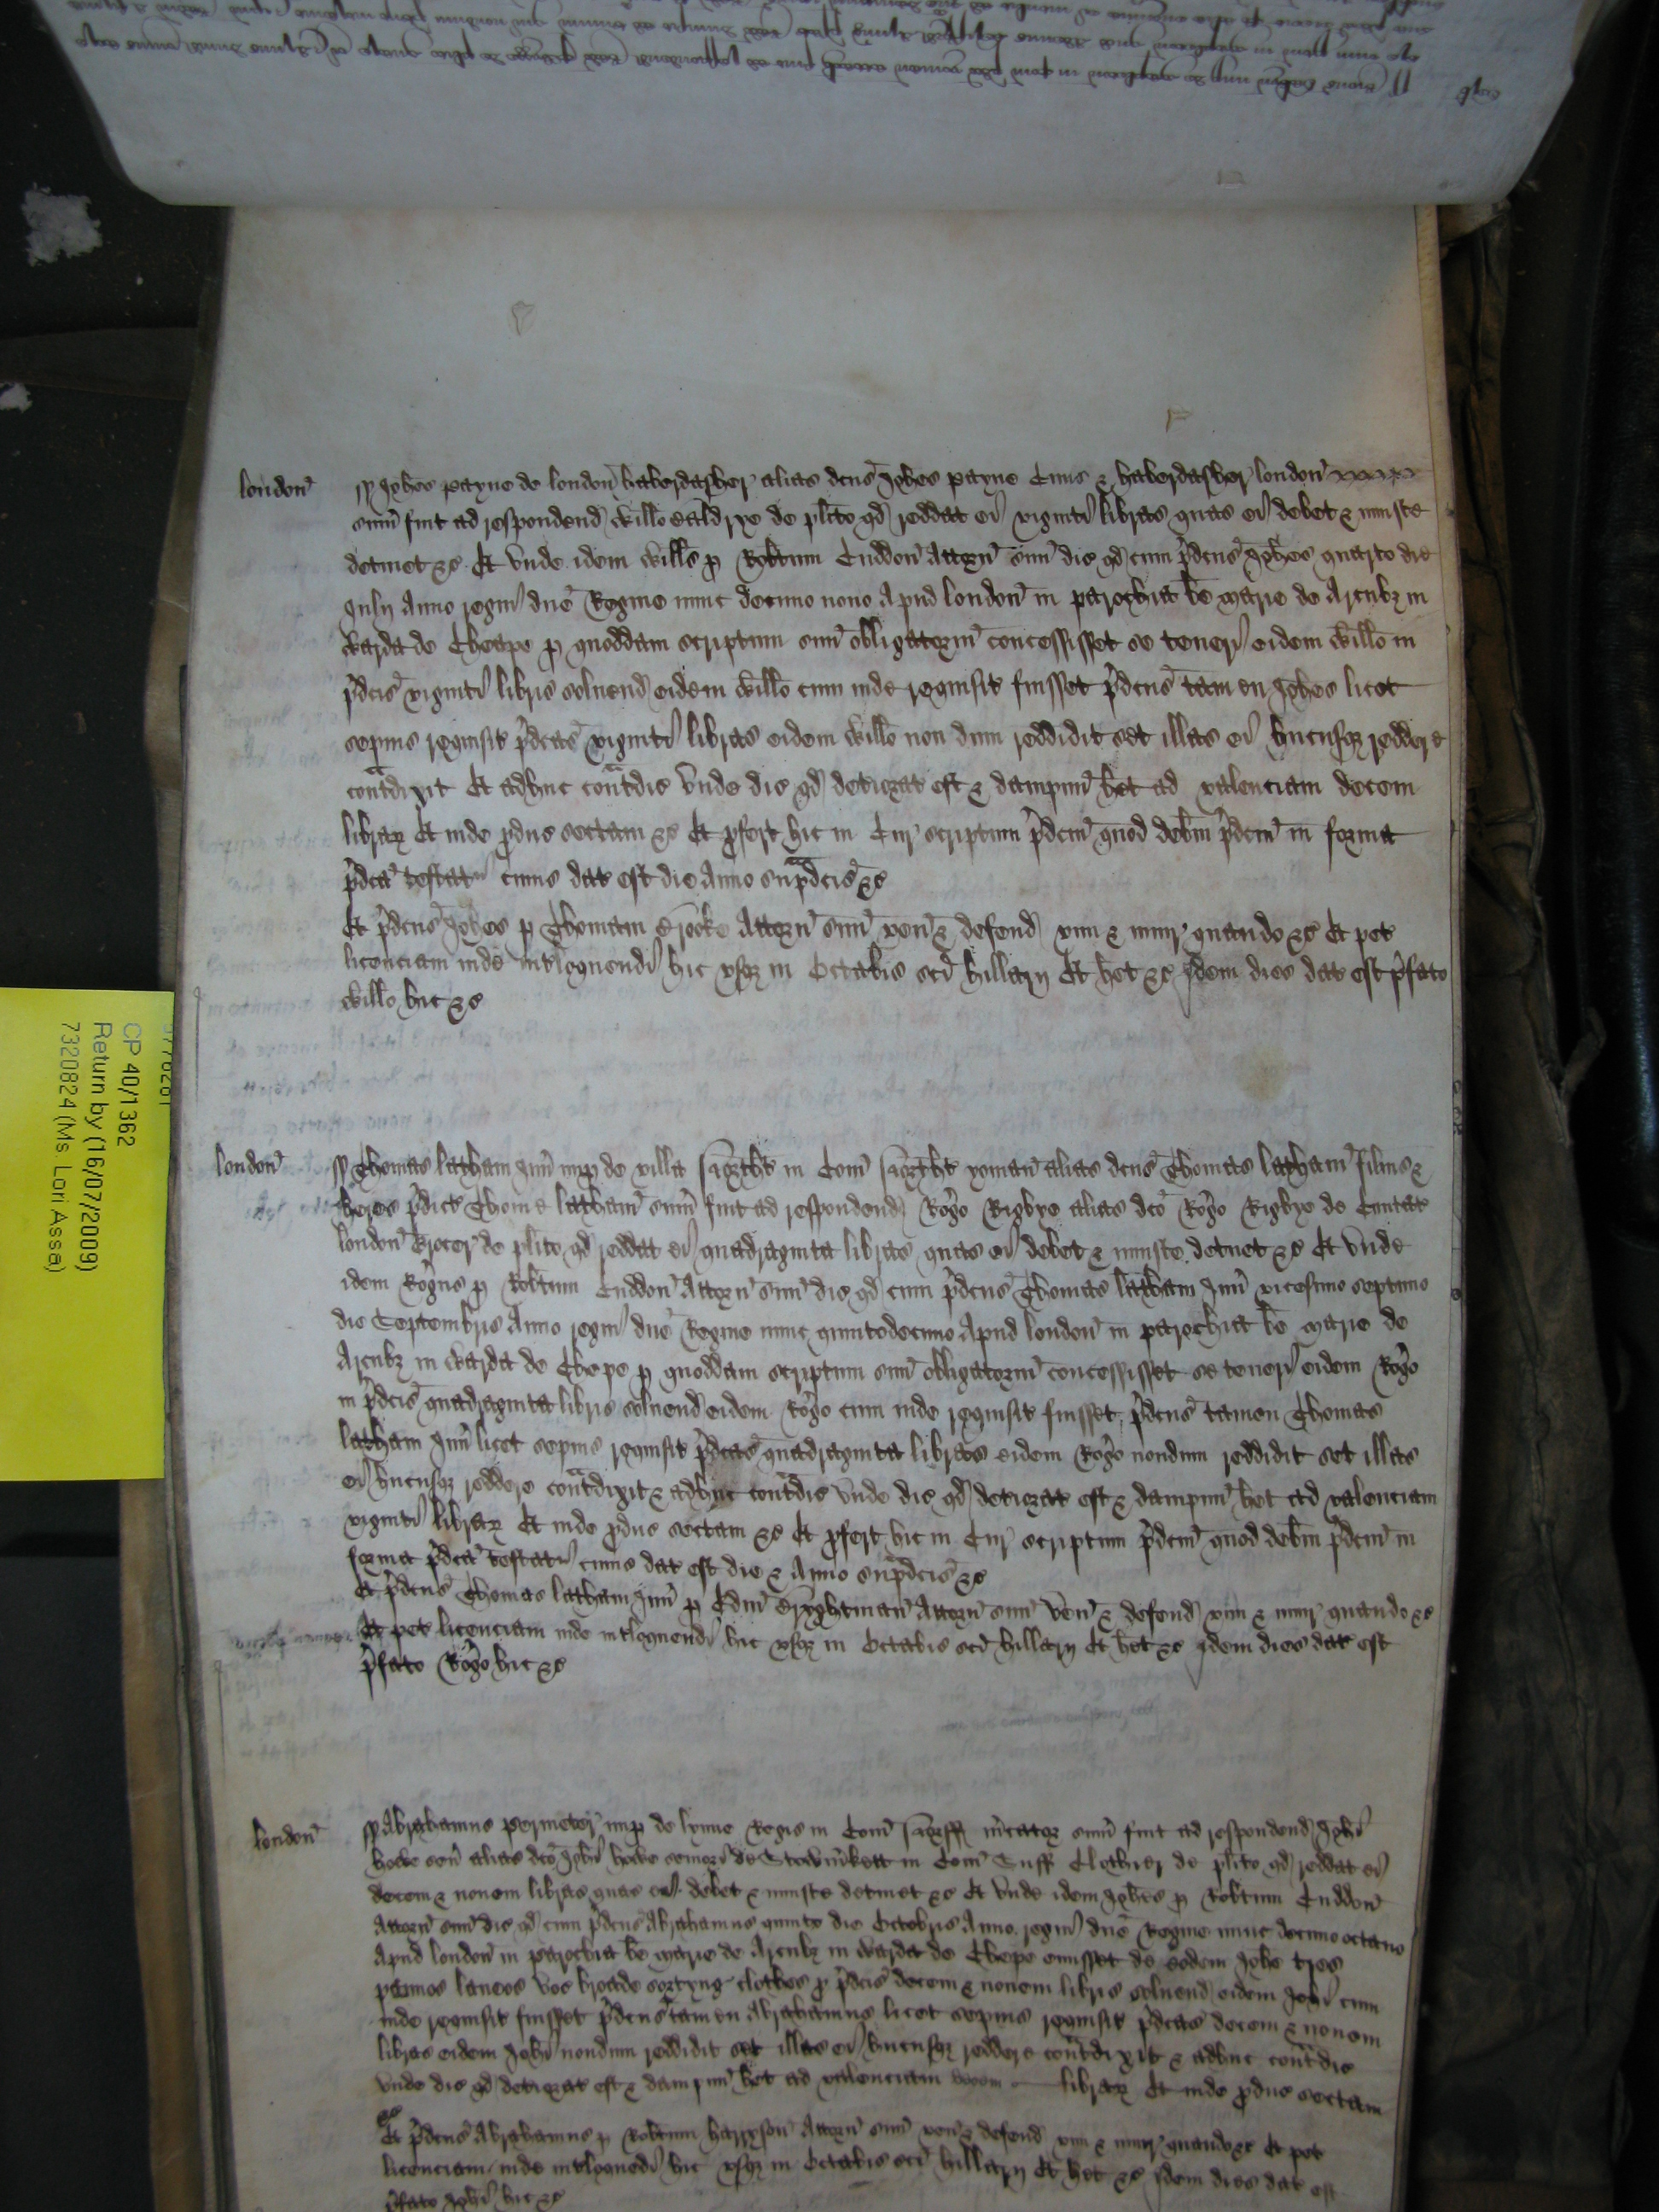 london̄ ss Joh̄es Payne de london̄ haberdasher alias dc̄us Joh̄es Payne Civis & haberdassher london̄
sum̄ fuit ad respondend̄ Will̄o Aldrye de pl̄ito qd̄ reddat ei viginti libras quas ei debet & iniuste
detinet &c Et unde idem Will̄s p Rob̄tum Cuddon̄ Attorn̄ suū dic̄ qd̄ cum p̄dc̄us Joh̄es quarto die
Julij Anno regni dn̄e Regine nunc decimo nono Apud london̄ in parochia b̄e Marie de Arcubȝ in
Warda de Cheape p quoddam scriptum suū obligatoriū concessisset se teneri eidem Will̄o in
p̄dc̄is viginti libris solvend̄ eidem Will̄o cum inde requisit̄ fuisset p̄dc̄us tamen Joh̄es licet
sepius requisit̄ p̄dc̄as viginti libras eidem Will̄o non dum reddidit set illas ei hucusqȝ reddere
contradixit Et adhuc contradic̄ Unde dic̄ qd̄ deteriorat̄ est & dampnū h̄et ad valenciam decem
librar̄ Et inde p̄duc̄ sectam &c Et p̄fert hic in Cur̄ scriptum p̄dc̄m̄ quod deb̄m p̄dc̄m̄ in forma
p̄dc̄a testatr̄ cuius dat̄ est die Anno sup̄adc̄is &c
Et p̄dc̄us Joh̄es p Thomam Attorn̄ suū ven̄ & defend̄ vim & iniur̄ quando &c Et pet̄
licenciam inde int̄loquendi hic usqȝ in Octabis sc̄i hillarij Et h̄et &c Idem dies dat̄ est p̄fato
Will̄o hic &c
london̄ ss Thomas latham Jun̄ nup de villa North̄t in Com̄ North̄t yoman̄ alias dc̄us Thomas latham̄ filius &
heres p̄dict̄ Thome latham̄ sum̄ fuit ad respondend̄ Roḡo Rigbye alias dc̄o Roḡo Rigbye de Civitat̄
london̄ Grocer de pl̄ito qd̄ reddat ei quadraginta libras quas ei debet & iniuste detinet &c Et Unde
idem Roḡus p Rob̄tum Cuddon̄ Attorn̄ suū dic̄ qd̄ cum p̄dc̄us Thomas latham Jun̄ vicesimo septimo
die Septembris Anno regni dn̄e Regine nunc quintodecimo Apud london̄ in parochia b̄e Marie de
Arcubȝ in Warda de Chepe p quoddam scriptum suū obligatoriū concessisset se teneri eidem Roḡo
in p̄dc̄is quadraginta libris solvend̄ eidem Roḡo cum inde requisit̄ fuisset p̄dc̄us tamen Thomas
latham Jun̄ licet sepius requisit̄ p̄dc̄as quadraginta libras eidem Roḡo nondum reddidit set illas
ei hucusqȝ reddere contradixit & adhuc contradic̄ Unde dic̄ qd̄ deteriorat̄ est & dampnū h̄et ad valenciam
viginti librar̄ Et inde p̄duc̄ sectam &c Et p̄fert hic in Cur̄ scriptum p̄dc̄m̄ quod deb̄m p̄dc̄m̄ in
forma p̄dc̄a testatr̄ cuius dat̄ est die & Anno sup̄adc̄is &c
Et p̄dc̄us Thomas latham Jun̄ p Edm̄ Attorn̄ suū ven̄ & defend̄ vim & iniur̄ quando &c
Et pet̄ licenciam inde int̄loquendi hic usqȝ in Octabis sc̄i hillarij Et h̄et &c Idem dies dat̄ est
p̄fato Roḡo hic &c
london̄ ss Abrahamus Permeter nup de lynne Regis in Com̄ Norff m̄cator sum̄ fuit ad respondend̄ Joh̄i
howe sen̄ alias dc̄o Joh̄i howe seniori de Stowm̄kett in Com̄ Suff Clothier de pl̄ito qd̄ reddat ei
decem & novem libras quas ei debet & iniuste detinet &c Et Unde idem Joh̄es p Rob̄tum Cuddon̄
Attorn̄ suū dic̄ qd̄ cum p̄dc̄us Abrahamus quinto die Octobris Anno regni dn̄e Regine nunc decimo octavo
Apud london̄ in parochia b̄e Marie de Arcubȝ in Warda de Chepe emisset de eodem Joh̄e tres
pannos laneos voc̄ broade sortyng clothes p p̄dc̄is decem & novem libris solvend̄ eidem Joh̄i cum
inde requisit̄ fuisset p̄dc̄us tamen Abrahamus licet sepius requisit̄ p̄dc̄as decem & novem
libras eidem Joh̄i nondum reddidit set illas ei hucusqȝ reddere contradixit & adhuc contradic̄
Unde dic̄ qd̄ deteriorat̄ est & dampnū h̄et ad valenciam decem librar̄ Et inde p̄duc̄ sectam
&c
Et p̄dc̄us Abrahamus p Rob̄tum harryson̄ Attorn̄ suū ven̄ & defend̄ vim & iniur̄ quando &c Et pet̄
licenciam inde int̄loquendi hic usqȝ in Octabis sc̄i hillarij Et h̄et &c Idem dies dat̄ est
p̄fato Joh̄i hic &c
CP 40/1362
Return by (16/07/2009)
7320824 (Ms. Lori Assa)